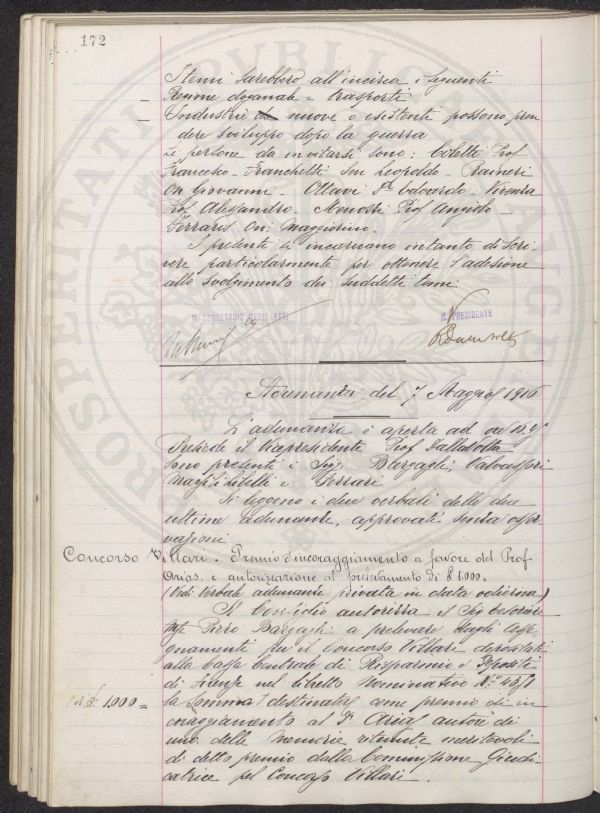 172
I temi sarebbero all'incirca i seguenti
– Regime doganale = trasporti
– Industrie che nuove o esistenti possono pren
dere sviluppo dopo la guerra
Le persone da invitarsi sono: Coletti Prof
Francesco - Franchetti Son Leopoldo - Raineri
On Giovanni - Ottavi Dr Edoardo - Vivenza
Prof. Alessandro - Menozzi Prof Angelo -
Ferraris On: Maggiorino.
I presenti si incaricano intanto di scri-
vere particolarmente per ottenere l'adesione
allo svolgimento dei suddetti temi
IL SEGRETARIO DEGLI ATTI
IL PRESIDENTE
Adunanza del 7 Maggio 1916
L'adunanza è aperta ad ore
Presiede il Vicepresidente Prof Dalla Volta
Sono presenti i Sigg. Bargagli, Valvassori
e Ferrari
Si leggono i due verbali delle due
ultime adunanze, approvati senza osser
vazioni
Concorso Villari. - Premio d'incoraggiamento a favore del Prof
Arias e autorizzazione al prelevamento di £ 1.000.
(Vedi Verbale adunanza privata in data odierna)
Il Consiglio autorizza il Sig Tesoriere
Mse Piero Bargagli a prelevare dagli asse-
gnamenti per il Concorso Villari depositati
alla Cassa Centrale di Risparmi e Depositi
di Firenze nel libretto nominativo No
£ 1.000 =
la somma destinata come premio di in
coraggiamento al Dr Arias autore di
una delle Memorie ritenute meritevoli
di detto premio dalla Commissione Giudi
catrice pel Concorso Villari.
PROSPERITATI PUBLICAE AUGENDAE